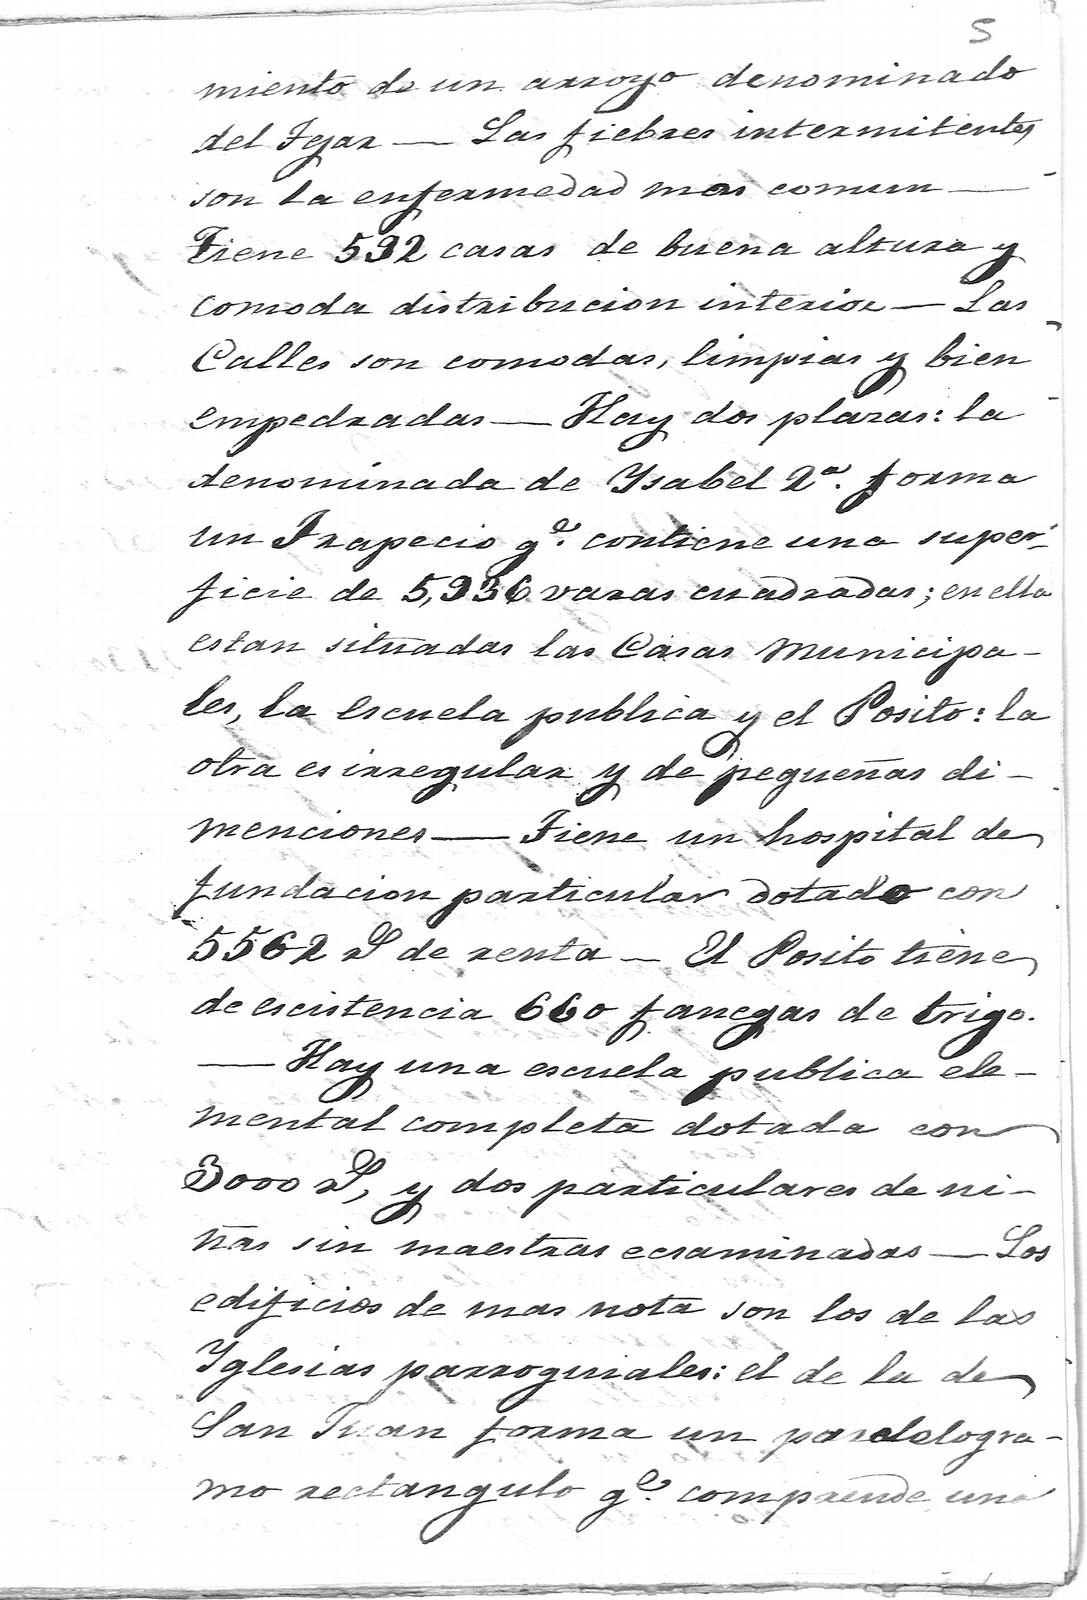 5
miento de un arroyo denominado
del Igar — Las fiebres intermitentes
son la enfermedad mas comun —
Tiene 592 casas de buena altura y
comoda distribucion interior — Las
Calles son comodas, limpias y bien
empedradas — Hay dos plazas: la
denominada de Ysabel 2ª. forma
un Trapecio qe. contiene una super-
ficie de 5,936 varas cuadradas; en ella
estan situadas las Casas Municipa-
les, la escuela publica y el Posito: la
otra es irregular y de pequeñas di-
menciones — Tiene un hospital de
fundacion particular dotado con
5562 rs de renta — El Posito tiene
de escistencia 660 fanegas de trigo.
— Hay una escuela publica ele-
mental completa dotada con
3000 rs, y dos particulares de ni-
ñas sin maestras ecsaminadas — Los
edificios de mas nota son los de las
Yglesias parroquiales: el de la de
San Juan forma un paralelogra-
mo rectangulo qe. comprende una